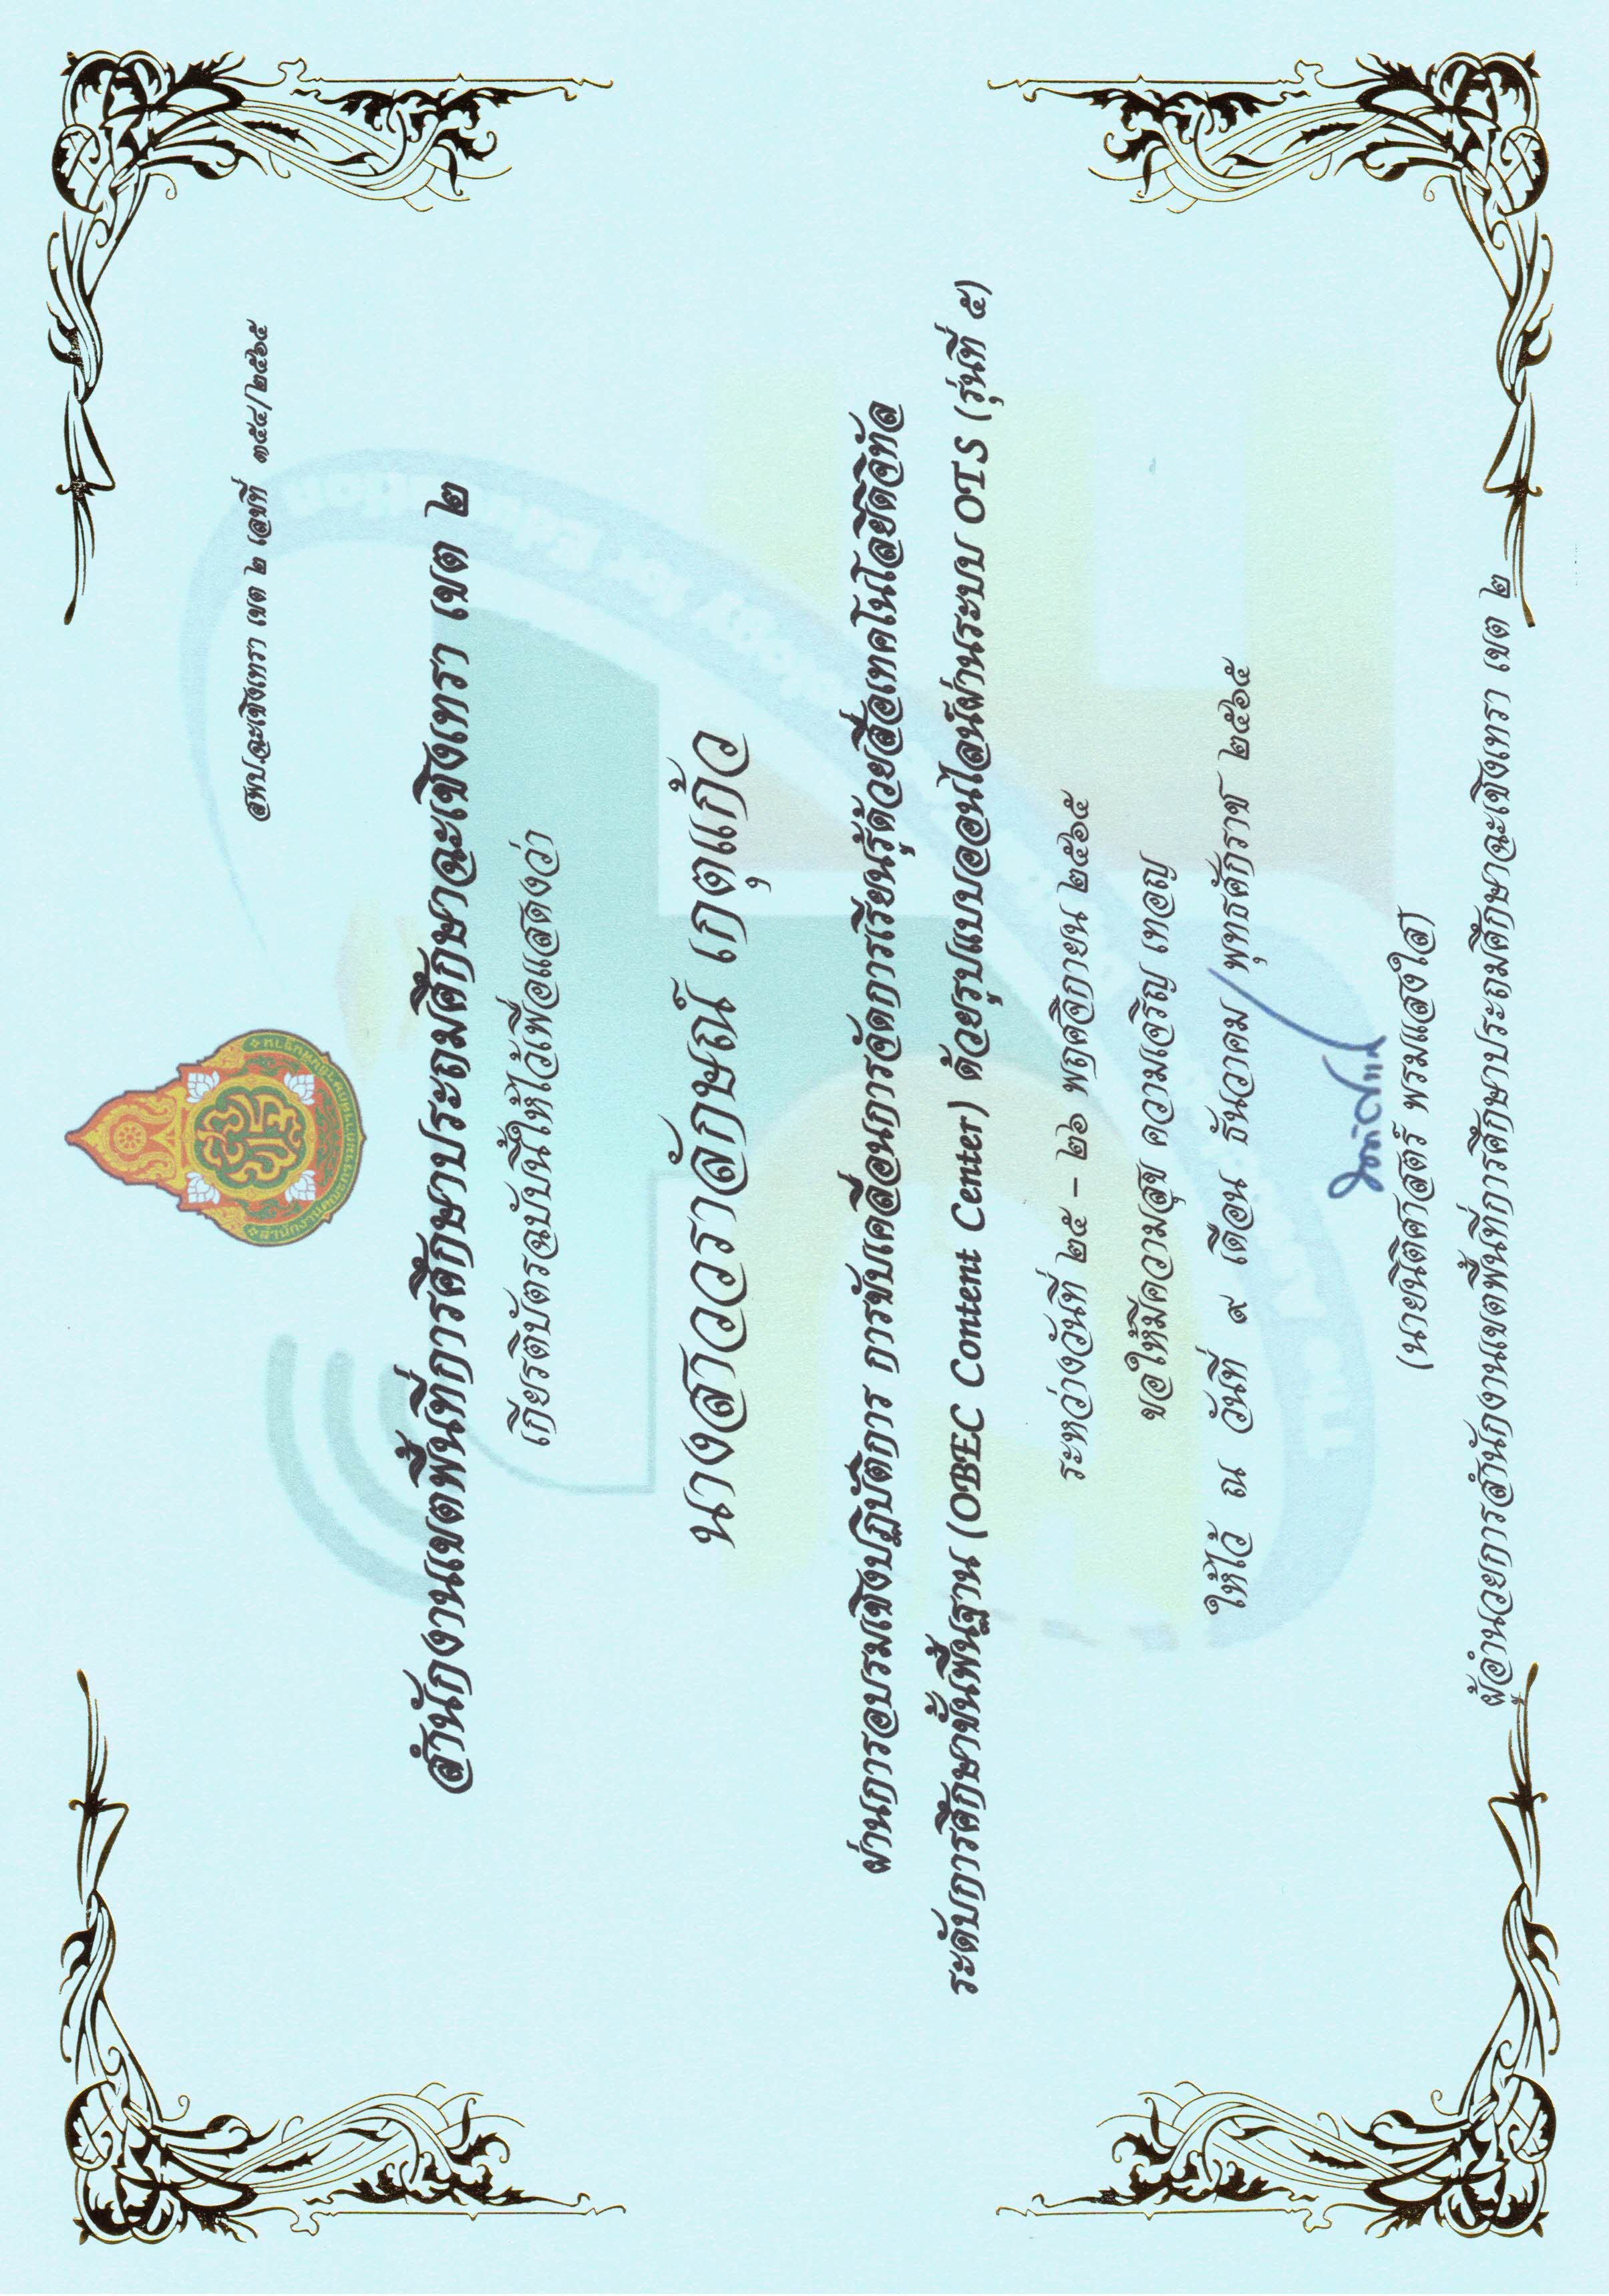 สพป.ฉะเชิงเทรา เขต ๒ เลขที่ ๓๕๔/๒๕๖๕
สำนักงานเขตพื้นที่การศึกษาประถมศึกษาฉะเชิงเทรา เขต ๒
เกียรติบัตรฉบับนี้ให้ไว้เพื่อแสดงว่า
นางสาววราลักษณ์ เกตุแก้ว
ผ่านการอบรมเชิงปฏิบัติการ การขับเคลื่อนการจัดการเรียนรู้ด้วยสื่อเทคโนโลยีดิจิทัล
ระดับการศึกษาขั้นพื้นฐาน (OBEC Content Center) ด้วยรูปแบบออนไลน์ผ่านระบบ OTS (รุ่นที่ ๕)
ระหว่างวันที่ ๒๕ – ๒๖ พฤศจิกายน ๒๕๖๕
ขอให้มีความสุข ความเจริญ เทอญ
ให้ไว้ ณ วันที่ ๙ เดือน ธันวาคม พุทธศักราช ๒๕๖๕
(นายนิติศาสตร์ พรมแสงใส)
ผู้อำนวยการสำนักงานเขตพื้นที่การศึกษาประถมศึกษาฉะเชิงเทรา เขต ๒